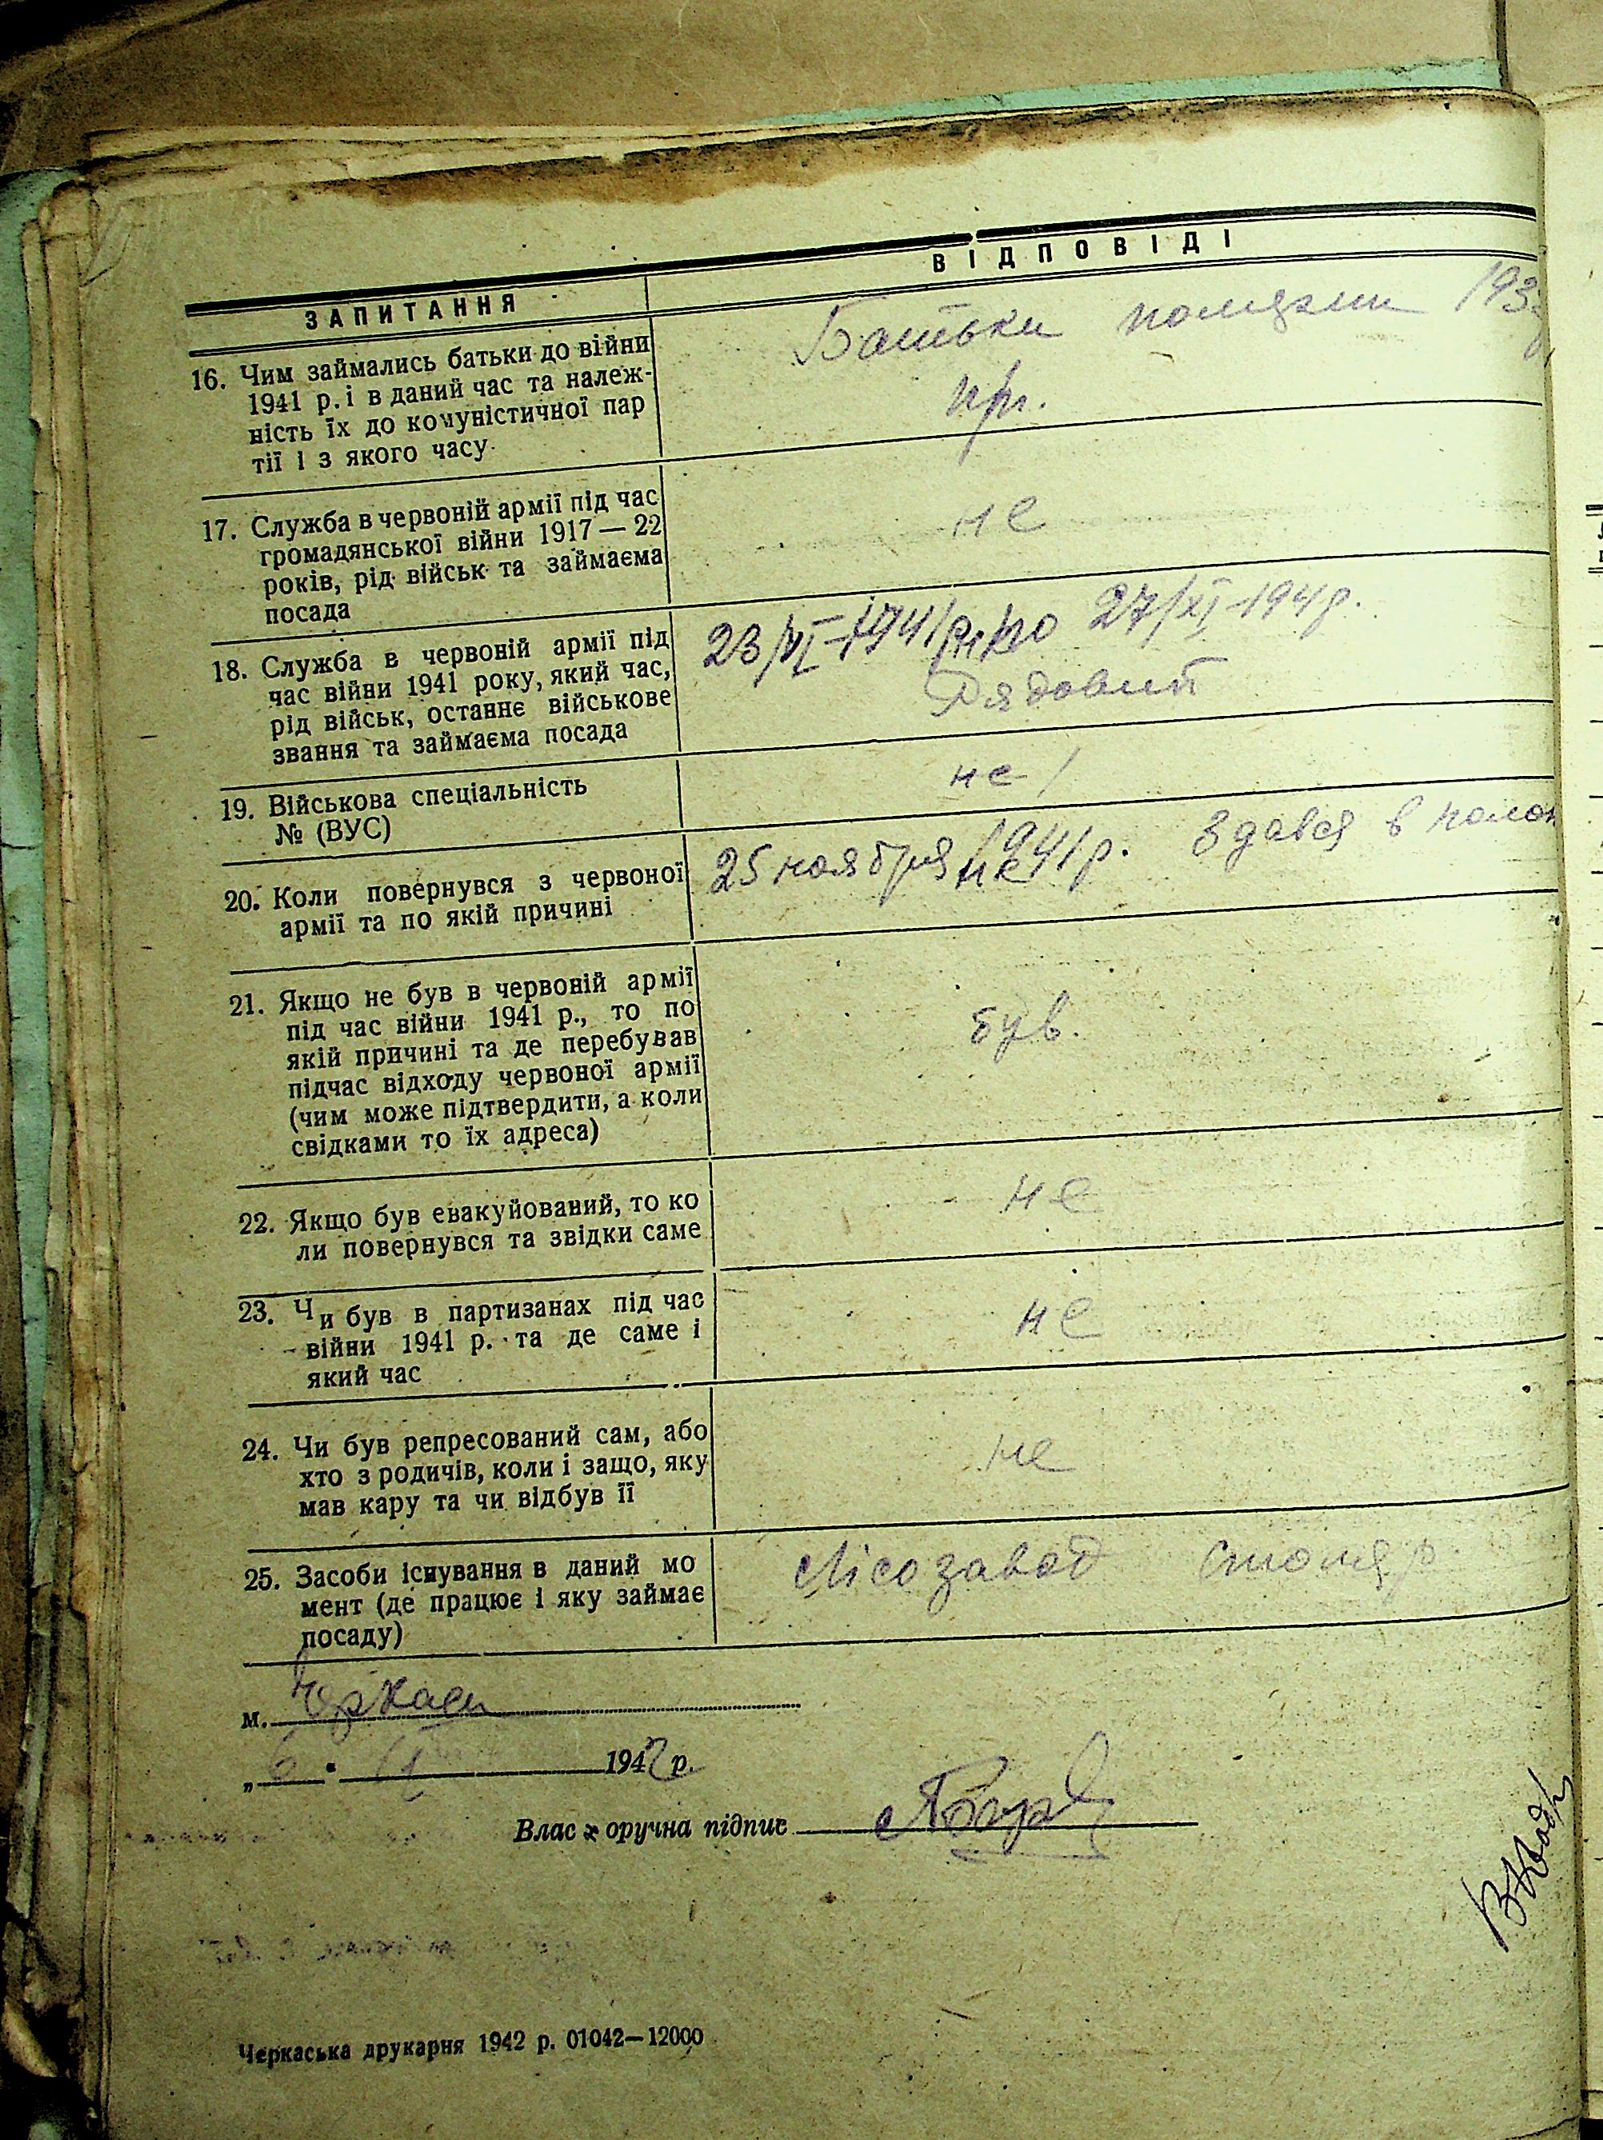 ЗАПИТАННЯ
ВІДПОВІДІ
16. Чим займались батьки до війни
1941 р. і в даний час та належ-
ність їх до комуністичної пар
тії і з якого часу
Батьки
17. Служба в червоній армії під час
громадянської війни 1917 — 22
років, рід військ та займаєма
посада
не
18. Служба в червоній армії під
час війни 1941 року, який час,
рід військ, останнє військове
звання та займаєма посада
23/VI-1941р. по 27/XI-194 р.
Рядовий
19. Військова спеціальність
№ (ВУС)
не
20. Коли повернувся з червоної
армії та по якій причині
25 ноября 1941р. Здався в полон
21. Якщо не був в червоній армії
під час війни 1941 р., то по
якій причині та де перебував
підчас відходу червоної армії
(чим може підтвердити, а коли
свідками то їх адреса)
був.
22. Якщо був евакуйований, то ко
ли повернувся та звідки саме
не
23. Чи був в партизанах під час
війни 1941 р. та де саме і
який час
не
24. Чи був репресований сам, або
хто з родичів, коли і защо, яку
мав кару та чи відбув її
не
25. Засоби існування в даний мо
мент (де працює і яку займає
посаду)
Лісозавод столяр.
м. Черкаси
„6" 11 1942 р.
Власноручна підпис
Черкаська друкарня 1942 р. 01042—12000